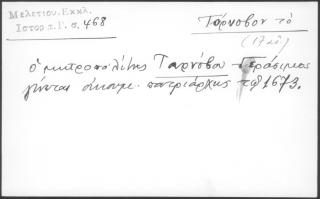 Μελετίου. Εκκλ.
Ιστορ τ. Γ΄. σ. 468
Τάρνοβον τὸ
(17 αἰ)
ὁ μητροπολίτης Ταρνόβου Γεράσιμος
γίνεται οἰκουμ. πατριάρχης τῷ 1673.